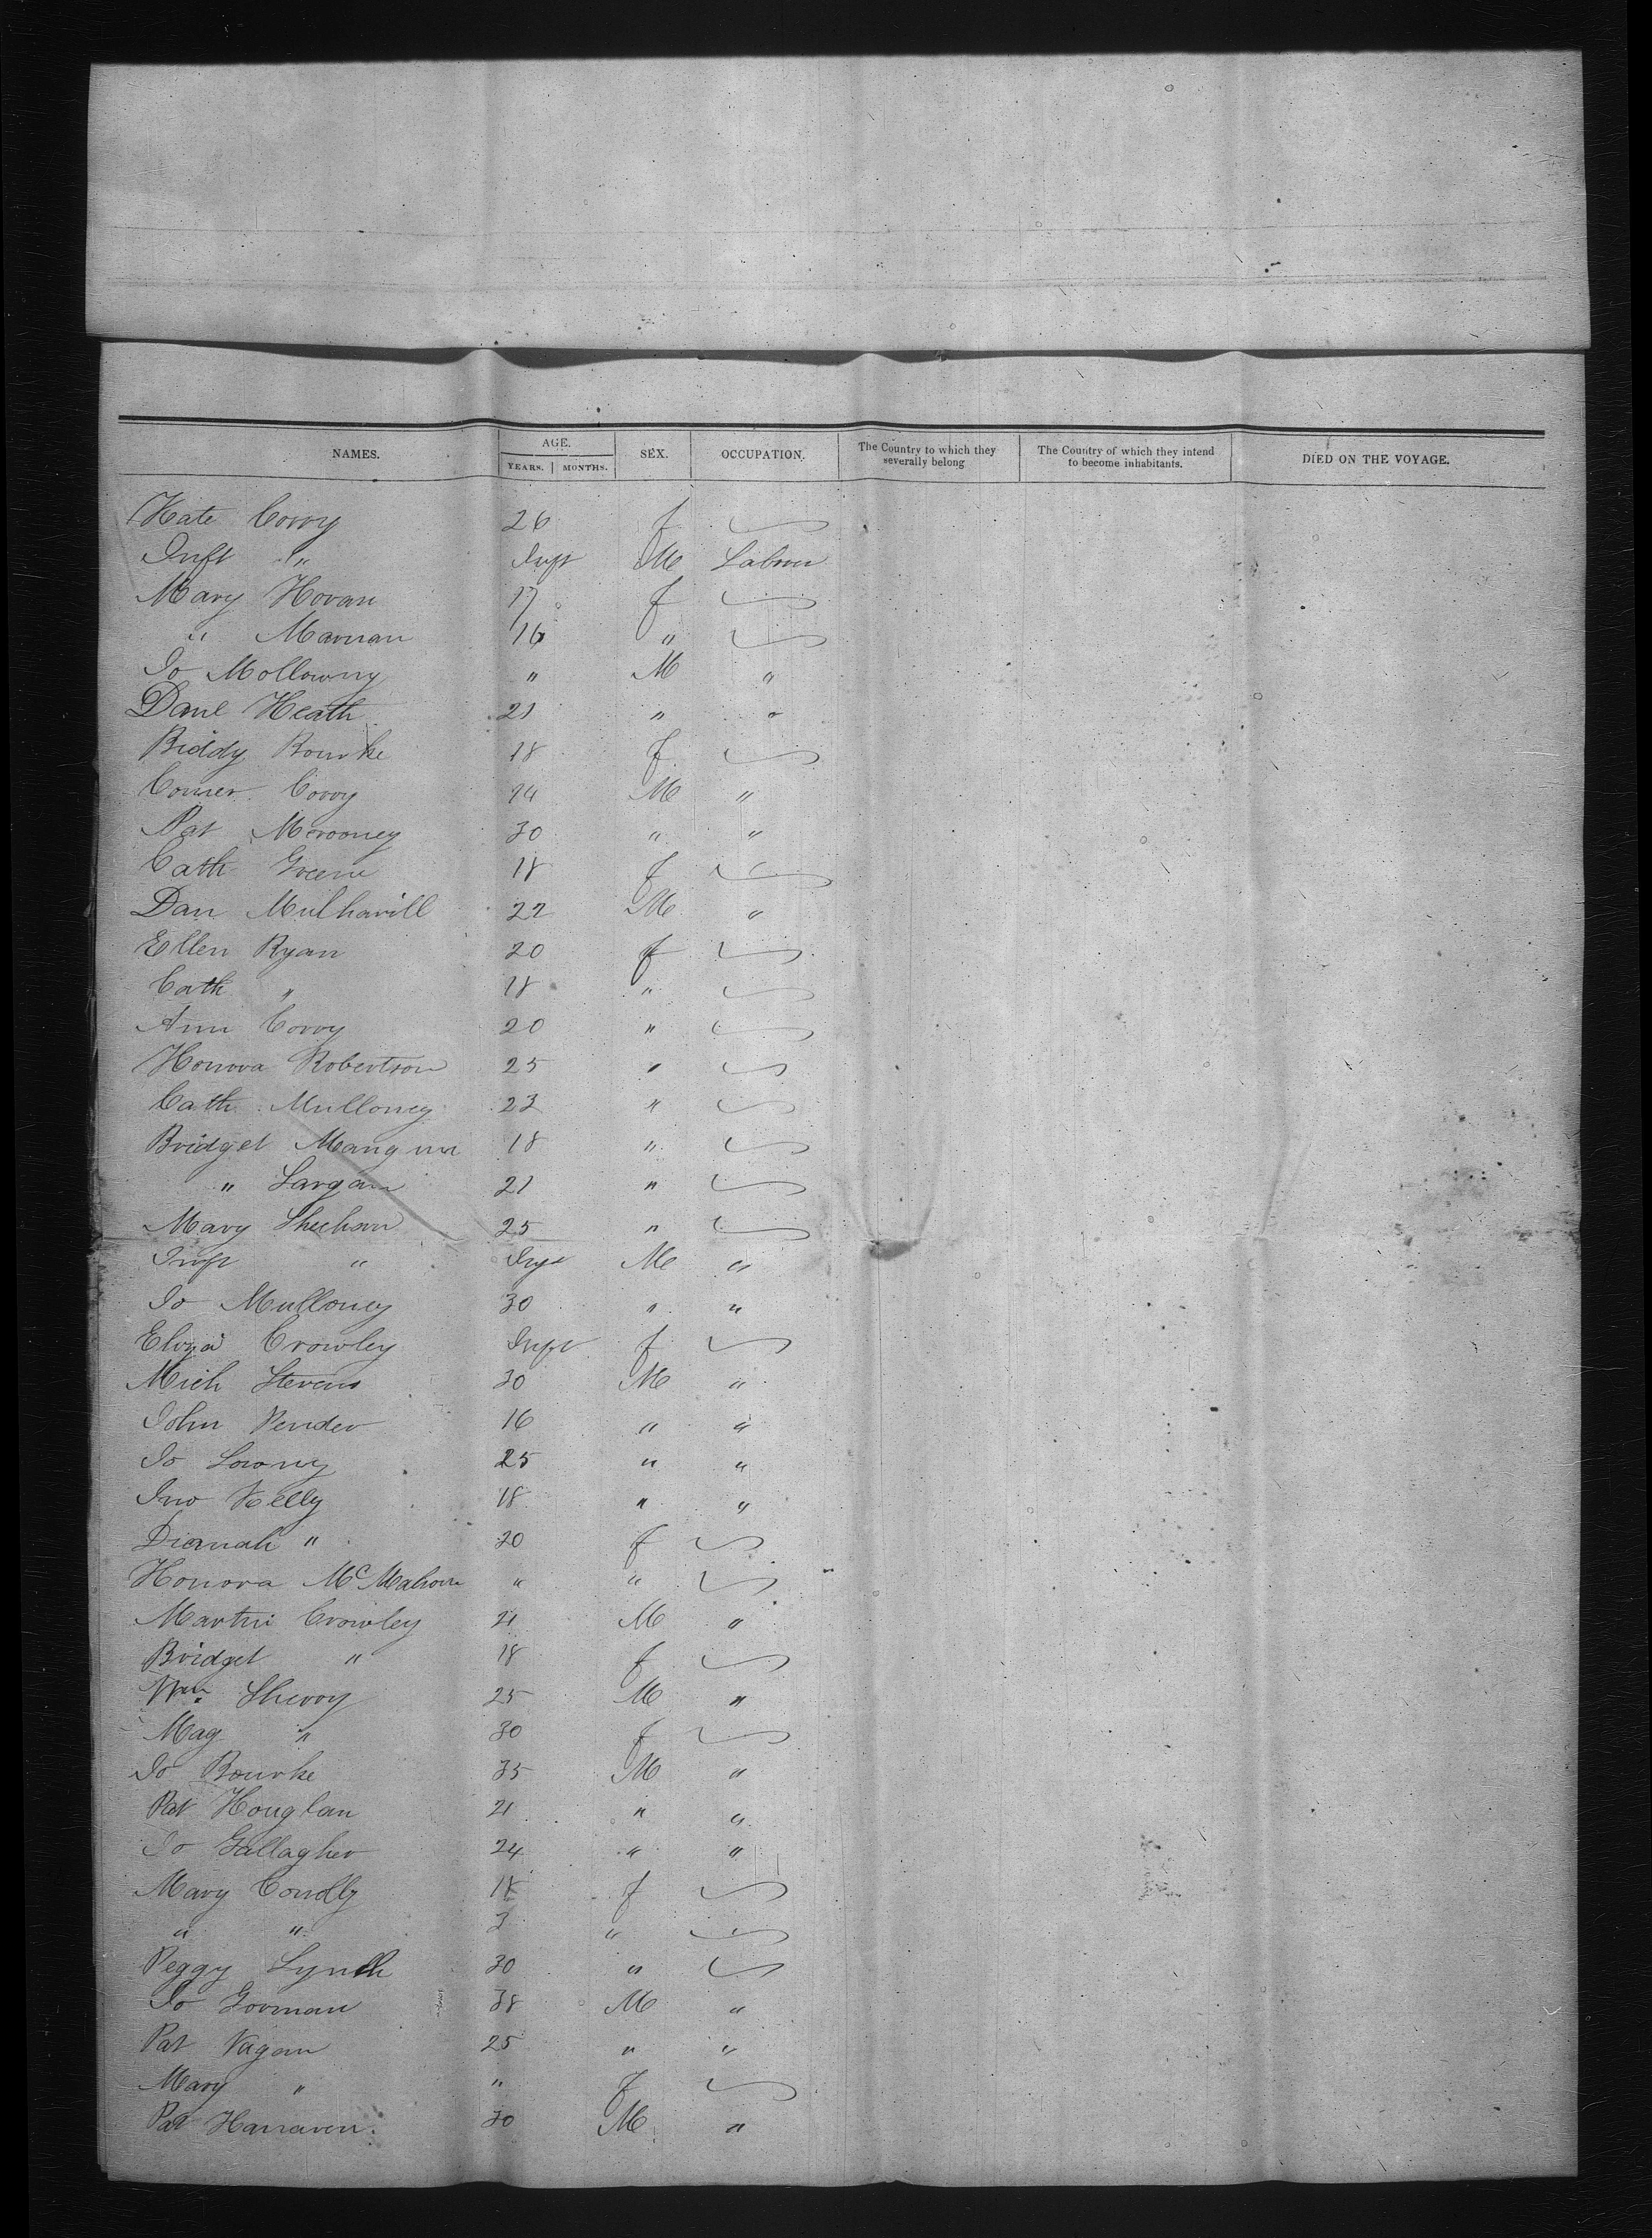 NAMES. AGE. YEARS. MONTHS. SEX. OCCUPATION. The Country to which they severally belong The Country of which they intend to become inhabitants. DIED ON THE VOYAGE.
Kate Corry 26 f
Inft " Inft M Labour
Mary Horan 17 f
" Marnan 16 "
Jo Mollowny " M "
Danl Heath 21 " "
Biddy Rourke 18 f
Corry 24 M "
Pat Morooney 30 " "
Cath Greene 18 f
Dan Mulhavill 22 M "
Ellen Ryan 20 f
Cath " 18 "
Ann Corry 20 "
Honora Robertson 25 "
Cath Mulloney 23 "
Bridget 18 "
" Largan 21 "
Mary Sheehan 25 "
Inft " Inft M "
Jo Mulloney 30 " "
Eliza Crowley Inft f
Mich Stevens 30 M "
John Pender 16 " "
Jo Lowny 25 " "
Jno Kelly 18 " "
Dianah " 20 f
Honora McMahon " "
Martin Crowley 21 M "
Bridget " 18 f
Wm. Sherry 25 M "
Mag " 30 f
Jo Bourke 35 M "
Pat Houglan 21 " "
Jo Gallagher 24 " "
Mary Condly 18 f
" " 3 "
Peggy Lynch 30 "
Jo Gorman 38 M "
Pat Nagan 25 " "
Mary " " f
Pat Hanraven. 30 M "